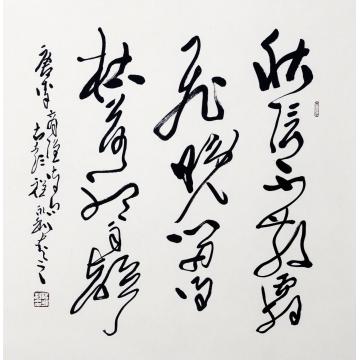 秋阴不散霜
飞晚留得
枯荷听雨声
唐李商隐诗句